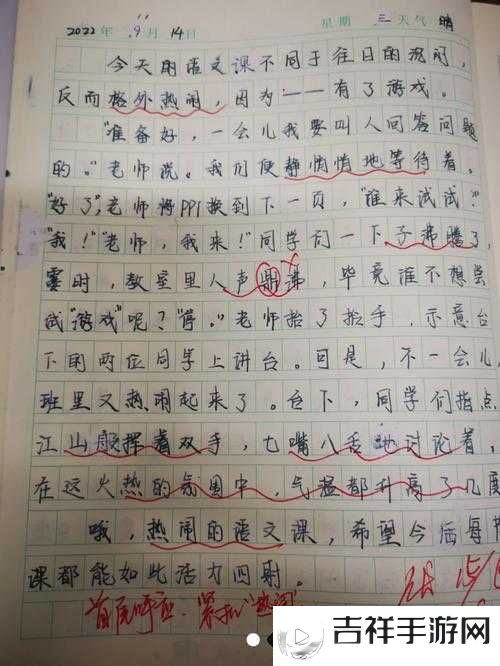 2022年 9月 14日 星期 三 天气 晴
今天的语文课不同于往日的沉闷，
反而格外热闹，因为——有了游戏。
“准备好，一会儿我要叫人回答问题
的。”老师说。我们便静悄悄地等待着。
“好了”，老师将PPT换到下一页，“谁来试试？”
“我！”“老师，我来！”同学们一下子沸腾了，
霎时，教室里人声鼎沸，毕竟谁不想尝
试“游戏”呢？“停。”老师抬了抬手，示意台
下的两位同学上讲台。可是，不一会儿
班里又热闹起来了。台下，同学们指点
江山般挥着双手，七嘴八舌地讨论着，
在这火热的氛围中，气温都升高了几度
哦，热闹的语文课，希望今后每节
课都能如此活力四射。
首尾呼应，紧扣“热闹”
吉祥手游网